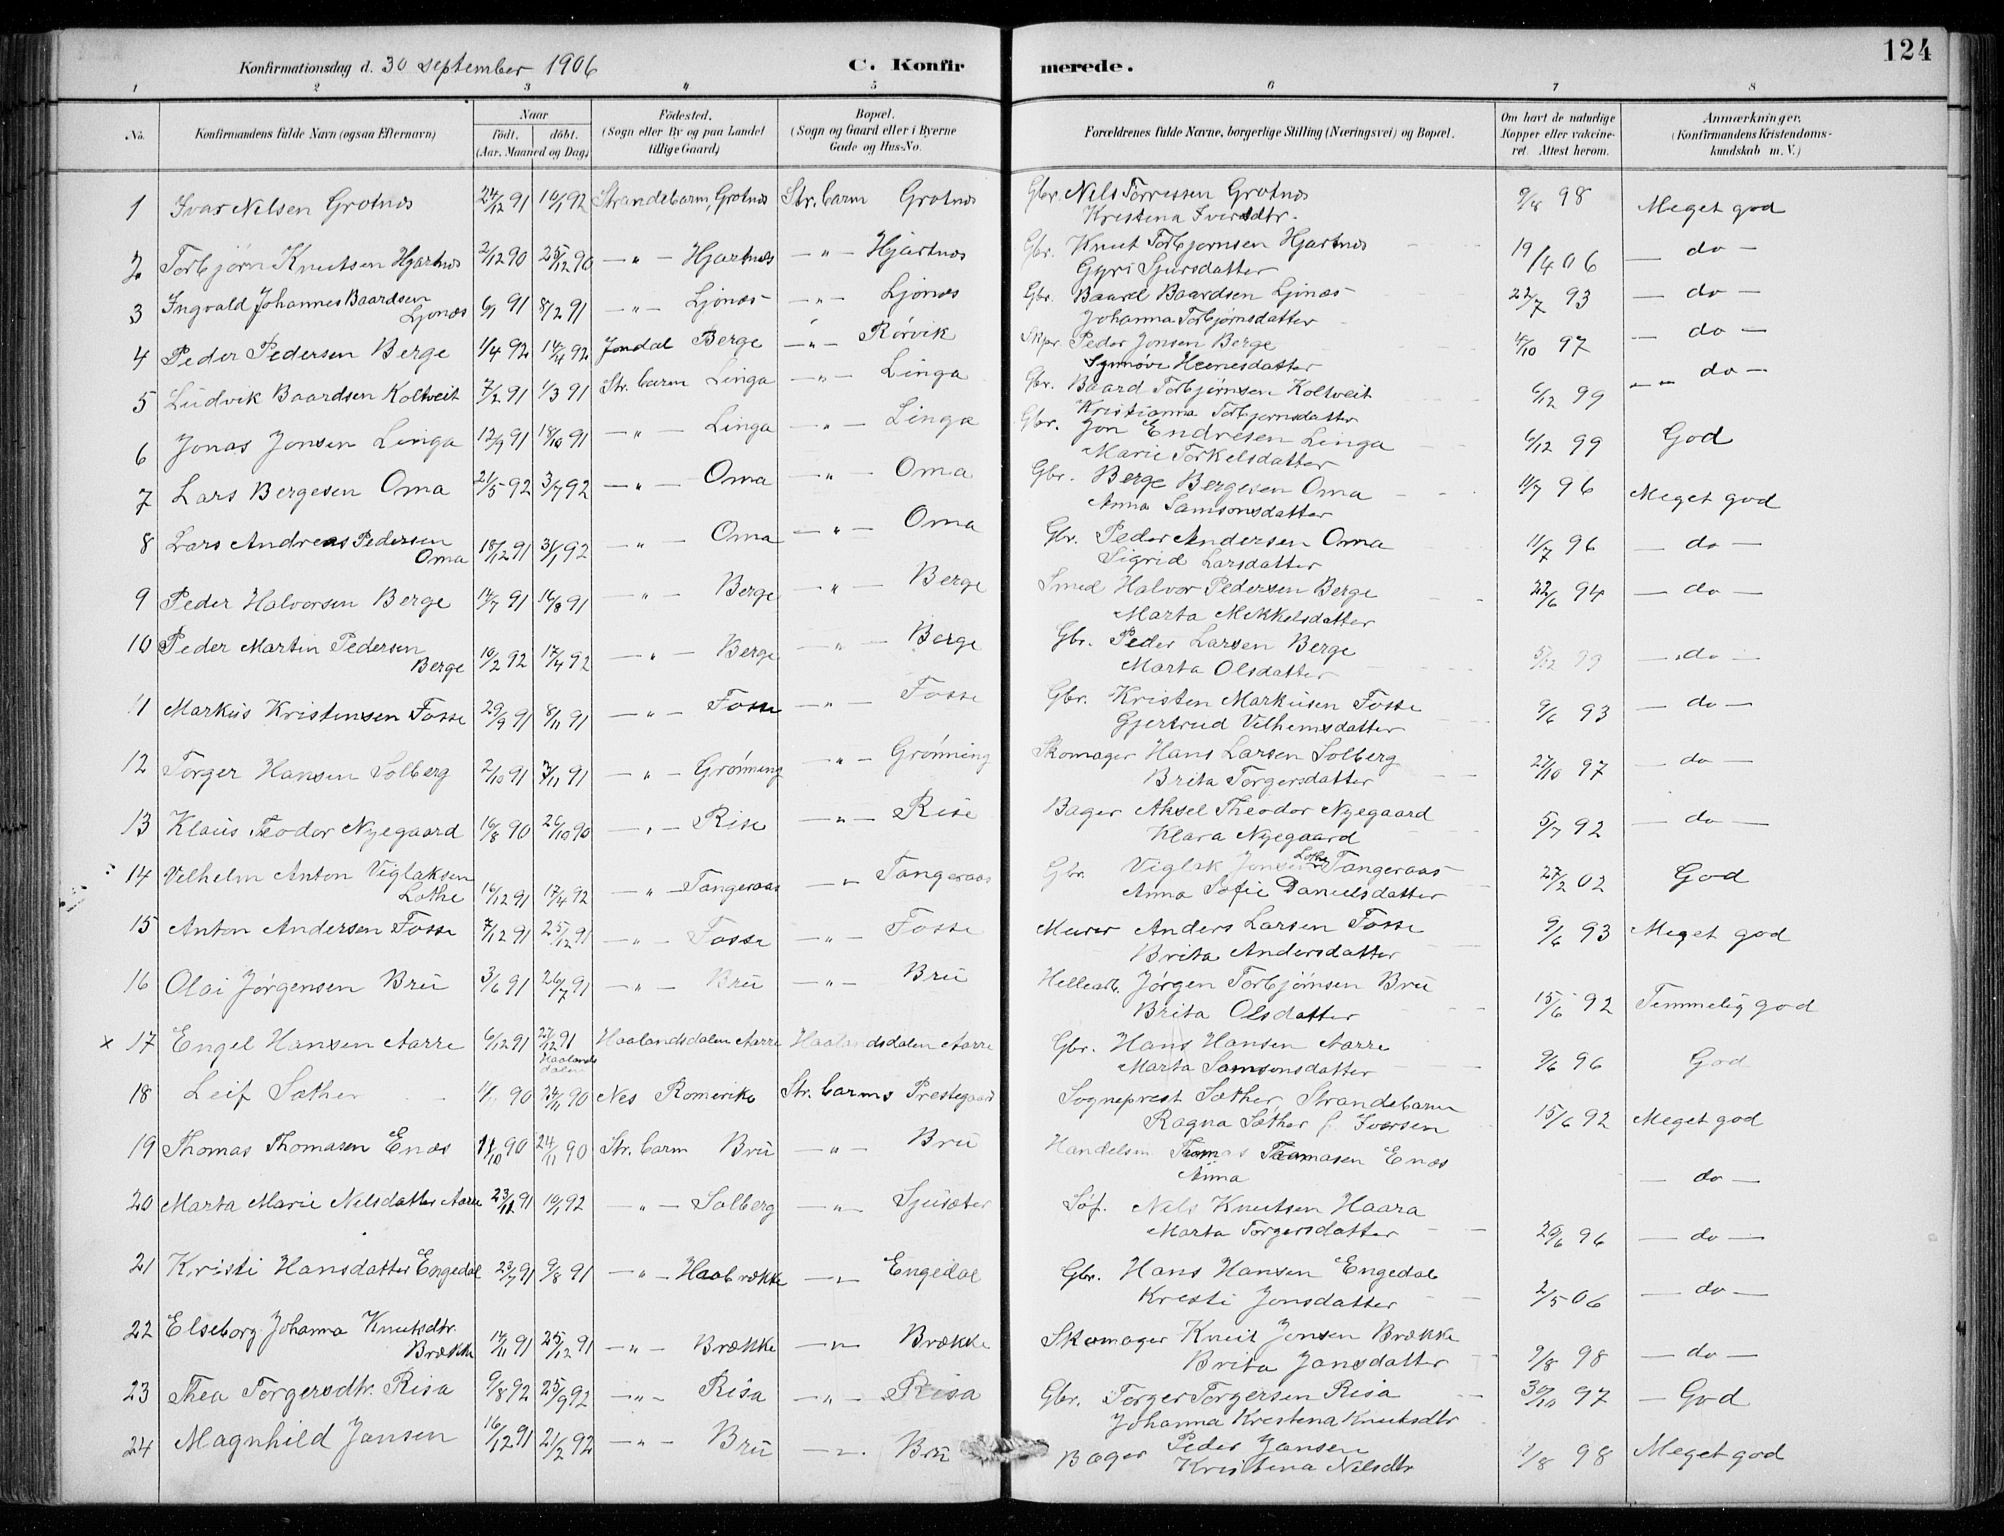 124
Konfirmationsdag d. 30 september 1906
C. Konfirmerede.
1 2 3 4 5 6 7 8
No. Konfirmandens fulde Navn (ogsaa Efternavn) Naar födt. döbt. (Aar, Maaned og Dag) Födested. (Sogn eller By og paa Landet tillige Gaard) Bopæl. (Sogn og Gaard eller i Byerne Gade og Hus-No. Forældrenes fulde Navne, borgerlige Stilling (Næringsvei) og Bopæl. Om havt de naturlige Kopper eller vakcineret. Attest herom. Anmærkninger. (Konfirmandens Kristendomskundskab m. V.)
1 Ivar Nelsen Grotnes 24/12 91 10/1 92 Strandebarm, Grotnes Str. barm Grotnes Gbr. Nels Torressen Grotnes 9/8 98 Meget god
Kristena Iversdtr.
2 Torbjørn Knutsen Hjartnes 2/12 90 25/12 90 — " — Hjartnes — " — Hjartnes Gbr. Knut Torbjørnsen Hjartnes 19/4 06 — do —
Gyri Sjursdatter
3 Ingvald Johannes Baardsen Ljonæs 6/1 91 8/2 91 — " — Ljonæs — " — Ljonæs Gbr. Baard Baardsen Ljonæs 22/7 93 — do —
Johanna Torbjørnsdatter
4 Peder Pedersen Berge 1/4 92 14/4 92 Jondal Berge — " — Rørvik Skpr. Peder Jonsen Berge 4/10 97 — do —
Synnøve Heinesdatter
5 Ludvik Baardsen Koltveit 7/2 91 1/3 91 Str. barm Linga — " — Linga Gbr. Baard Torbjørnsen Koltveit 6/12 99 — " — do —
Kristianna Torbjørnsdatter
6 Jonas Jonsen Linga 12/9 91 18/10 91 — " — Linga — " — Linga Gbr. Jon Endresen Linga 6/12 99 God
Marie Torkelsdatter
7 Lars Bergesen Oma 21/5 92 3/7 92 — " — Oma — " — Oma Gbr. Berge Bergesen Oma 11/7 96 Meget god
Anna Samsonsdatter
8 Lars Andreas Pedersen Oma 18/12 91 31/1 92 — " — Oma — " — Oma Gbr. Peder Andersen Oma 11/7 96 — do —
Sigrid Larsdatter
9 Peder Halvorsen Berge 14/7 91 16/8 91 — " — Berge — " — Berge Smed Halvor Pedersen Berge 22/6 94 — do —
Marta Mekkelsdatter
10 Peder Martin Pedersen Berge 10/2 92 17/4 92 — " — Berge — " — Berge Gbr. Peder Larsen Berge 5/12 99 — do —
Marta Olsdatter
11 Markus Kristensen Fosse 29/9 91 8/11 91 — " — Fosse — " — Fosse Gbr. Kristen Markusen Fosse 9/6 93 — do —
Gjertrud Vilhemsdatter
12 Torger Hansen Solberg 2/10 91 /11 91 — " — Grønning — " — Grønning Skomager Hans Larsen Solberg 27/10 97 — do —
Brita Torgersdatter
13 Klaus Teodor Nyegaard 16/8 90 26/10 90 — " — Rise — " — Rise Bager Aksel Theodor Nyegaard 5/7 92 — do —
Klara Nyegaard
14 Velhelm Anton Viglaksen Lothe 16/12 91 17/4 92 — " — Tangeraas — " — Tangeraas Gbr. Viglak Jonsen Lothe Tangeraas 27/2 02 God
Anna Sofie Danielsdatter
15 Anton Andersen Fosse 7/12 91 25/12 91 — " — Fosse — " — Fosse Murer Anders Larsen Fosse 9/6 93 Meget god
Brita Andersdatter
16 Olai Jørgensen Bru 3/6 91 26/7 91 — " — Bru — " — Bru Hellearb. Jørgen Torbjørnsen Bru 15/6 92 Temmelig god
Brita Olsdatter
x 17 Engel Hansen Aarre 6/12 91 27/12 91 Haalandsdalen Haalandsdalen Aarre Haalandsdalen Aarre Gbr. Hans Hansen Aarre 9/6 96 God
Marta Samsonsdatter
18 Leif Sæther 90 24/11 90 Nes Romerike Str. barms Prestegaard Sogneprest Sæther, Strandebarm 15/6 92 Meget god
Ragna Sæther f. Iversen
19 Thomas Thomasen Enæs 11/10 90 24/11 90 Str. barm Bru — " — Bru Handelsm Thomas Thomasen Enæs — do —
Anna
20 Marta Marie Nelsdatter Aarre 23/11 91 10/1 92 — " — Solberg — " — Sjusæter Søf. Nels Knutsen Haara 20/6 96 — do —
Marta Torgersdatter
21 Kristi Hansdatter Engedal 23/7 91 9/8 91 — " — Haabrække — " — Engedal Gbr. Hans Hansen Engedal 2/5 06 — do —
Kresti Jonsdatter
22 Elseborg Johanna Knutsdtr. Brække 14/11 91 25/12 91 — " — Brække — " — Brække Skomager Knut Jonsen Brække 9/8 98 — do —
Brita Jansdatter
23 Thea Torgersdtr. Risa 9/8 92 25/9 92 — " — Risa — " — Risa Gbr. Torger Torgersen Risa 30/10 97 — God
Johanna Krestena Knutsdtr
24 Magnhild Jansen 16/12 91 21/2 92 — " — Bru — " — Bru Bager Peder Jansen 9/8 98 Meget god
Kristena Nelsdtr